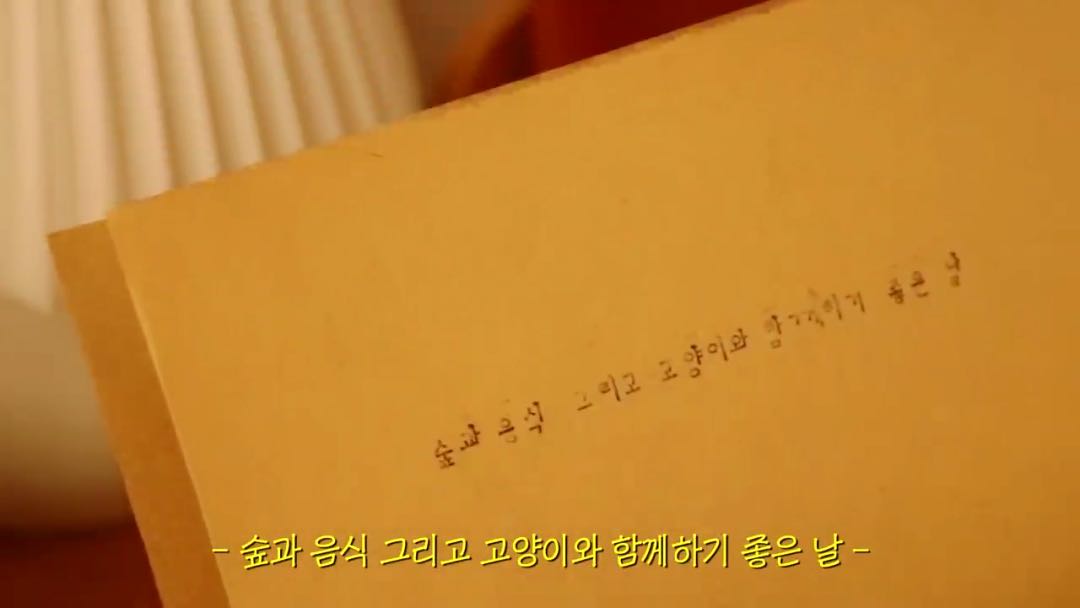 숲과 음식 그리고 고양이와 함께하기 좋은 날
- 숲과 음식 그리고 고양이와 함께하기 좋은 날 -